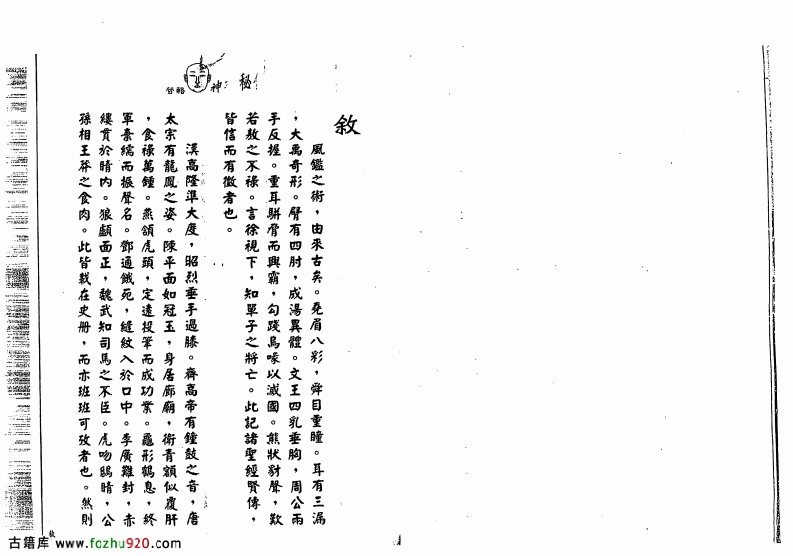 敘
風鑑之術，由來古矣。堯眉八彩，舜目重瞳。耳有三漏
，大禹奇形。臂有四肘，成湯異體。文王四乳垂胸，周公兩
手反握。重耳駢脅而興霸，勾踐鳥喙以滅國。熊狀豺聲，歎
若敖之不祿。言徐視下，知單子之將亡。此記諸聖經賢傳，
皆信而有徵者也。
漢高隆準大度，昭烈垂手過膝。齊高帝有鐘鼓之音，唐
太宗有龍鳳之姿。陳平面如冠玉，身居廊廟，衛青額似覆肝
，食祿萬鍾。燕頷虎頭，定遠投筆而成功業。龜形鶴息，終
軍棄繻而振聲名。鄧通餓死，縫紋入於口中。李廣難封，赤
縷貫於睛內。狼顧面正，魏武知司馬之不臣。虎吻鴟睛，公
孫相王莽之食肉。此皆載在史册，而亦班班可攷者也。然則
管輅 神 秘
敘
古籍库 www.fozhu920.com